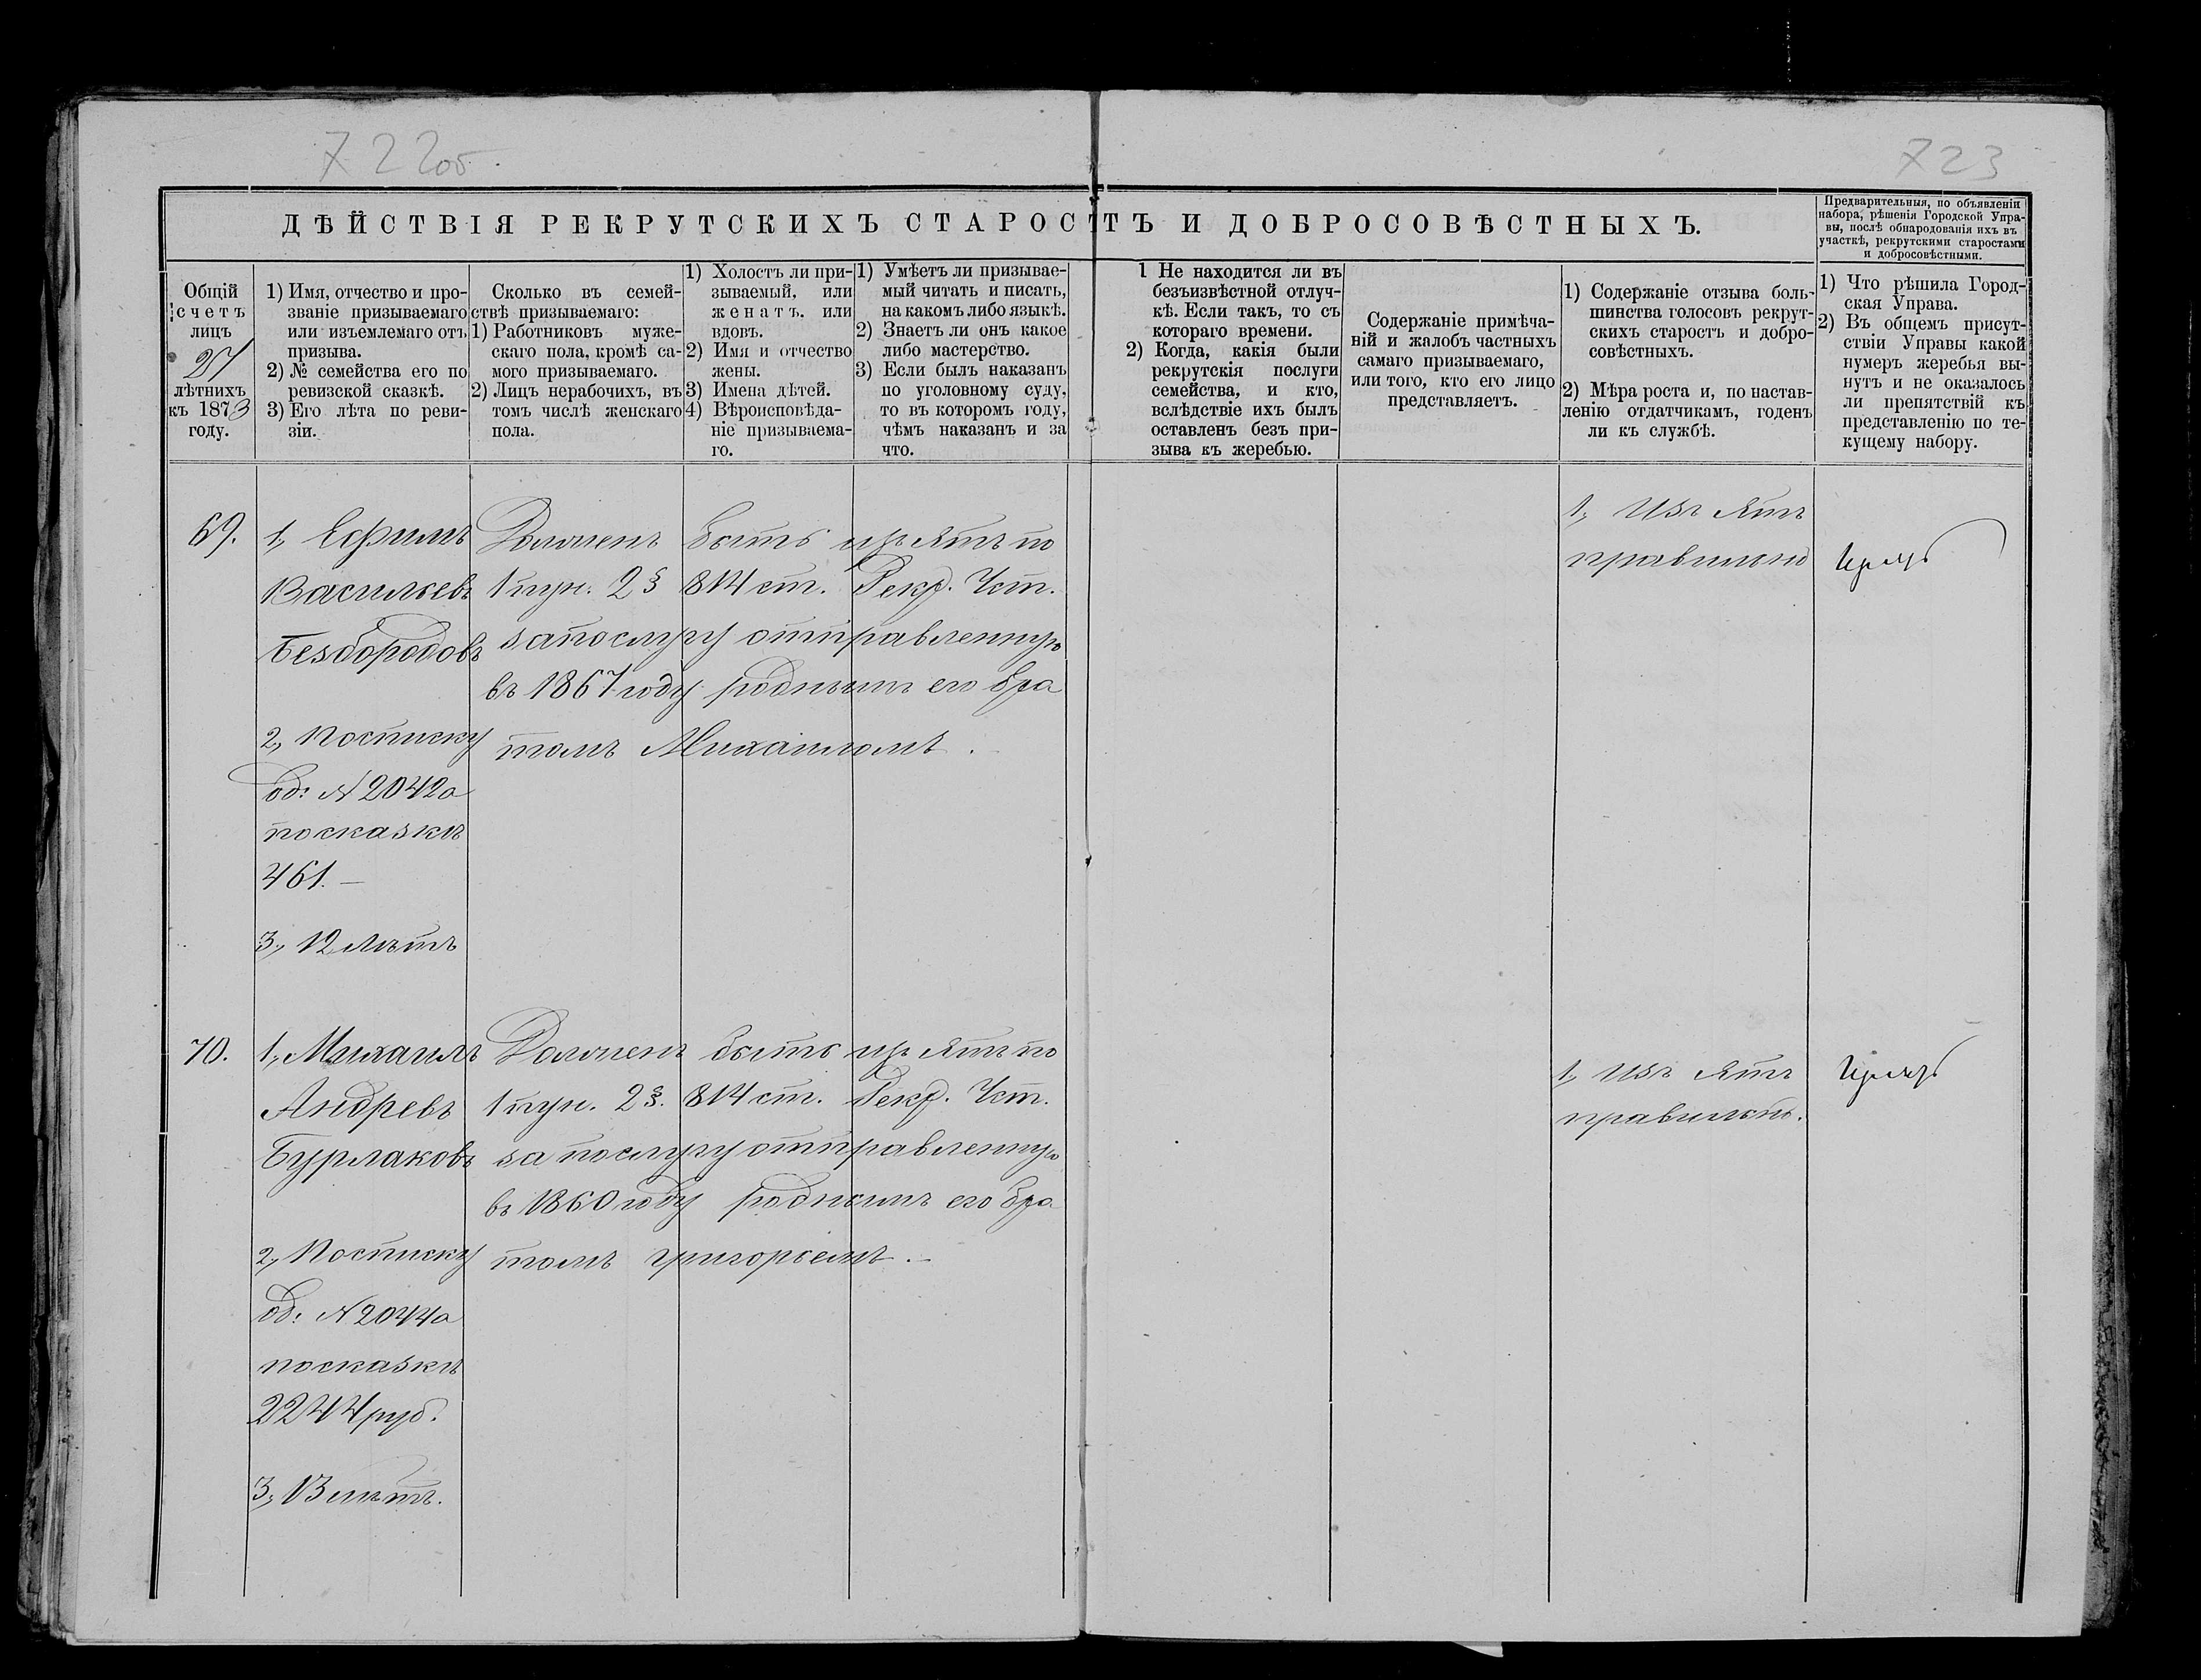 722об.
723
ДѢЙСТВІЯ РЕКРУТСКИХЪ СТАРОСТЪ И ДОБРОСОВѢСТНЫХЪ.
Предварительныя, по объявленіи
набора, рѣшенія Городской Упра-
вы, послѣ обнародованія ихъ въ
участкѣ, рекрутскими старостами
и добросовѣстными.
Общій
счетъ
лицъ
27
лѣтнихъ
къ 1873
году.
1) Имя, отчество и про-
званіе призываемаго
или изъемлемаго отъ
призыва.
2) № семейства его по
ревизской сказкѣ.
3) Его лѣта по реви-
зіи.
Сколько въ семей-
ствѣ призываемаго:
1) Работниковъ муже-
скаго пола, кромѣ са-
мого призываемаго.
2) Лицъ нерабочихъ, въ
томъ числѣ женскаго
пола.
1) Холостъ ли при-
зываемый, или
женатъ. или
вдовъ.
2) Имя и отчество
жены.
3) Имена дѣтей.
4) Вѣроисповѣда-
ніе призываема-
го.
1) Умѣетъ ли призывае-
мый читать и писать,
на какомъ либо языкѣ.
2) Знаетъ ли онъ какое
либо мастерство.
3) Если былъ наказанъ
по уголовному суду,
то въ которомъ году,
чѣмъ наказанъ и за
что.
1 Не находится ли въ
безъизвѣстной отлуч-
кѣ. Если такъ, то съ
котораго времени.
2) Когда, какія были
рекрутскія послуги
семейства, и кто,
вслѣдствіе ихъ былъ
оставленъ безъ при-
зыва къ жеребью.
Содержаніе примѣча-
ній и жалобъ частныхъ
самаго призываемаго,
или того, кто его лицо
представляетъ.
1) Содержаніе отзыва боль-
шинства голосовъ рекрут-
скихъ старостъ и добро-
совѣстныхъ.
2) Мѣра роста и, по настав-
ленію отдатчикамъ, годенъ
ли къ службѣ.
1) Что рѣшила Город-
ская Управа.
2) Въ общемъ присут-
ствіи Управы какой
нумеръ жеребья вы-
нутъ и не оказалось
ли препятствій къ
представленію по те-
кущему набору.
69.
1, Ефимъ
Васильевъ
Безбородовъ
2, По списку
об: №2042а
по сказкѣ
461.—
3, 12 лѣтъ
Долженъ быть изъятъ по
1 пун. 2 § 814 ст. Рекр. Уст.
за послугу отправленную
въ 1867 году роднымъ его бра
томъ Михаиломъ.
1, Изъятъ
правильно
70.
1, Михаилъ
Андревъ
Бурлаковъ
2, По списку
об: №2044а
по сказкѣ
2244 руб.
3, 13 лѣтъ.
Долженъ быть изъятъ по
1 пун. 2 §. 814 ст. Рекр. Уст.
за послугу отправленную
въ 1860 году роднымъ его бра
томъ Григорьемъ.—
1, Изъятъ
правильно.